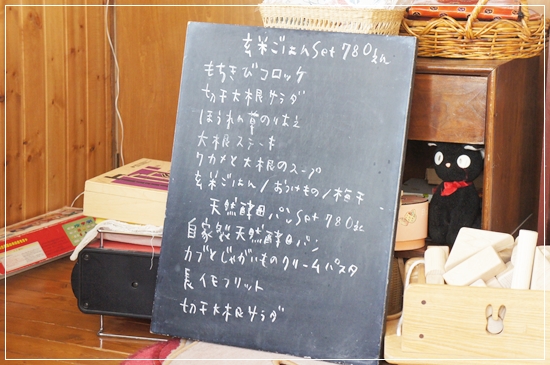 玄米ごはんSet 780えん
もちきびコロッケ
切干大根サラダ
ほうれん草のりあえ
大根ステーキ
ワカメと大根のスープ
玄米ごはん/おつけもの/梅干
天然酵母パンSet 780えん
自家製天然酵母パン
カブとじゃがいものクリームパスタ
長イモフリット
切干大根サラダ